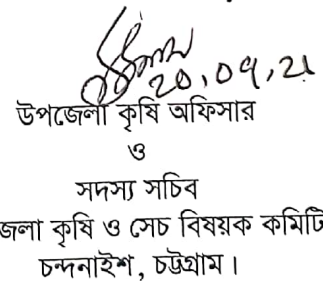 20.09.21
উপজেলা কৃষি অফিসার
ও
সদস্য সচিব
জেলা কৃষি ও সেচ বিষয়ক কমিটি
চন্দনাইশ, চট্টগ্রাম।